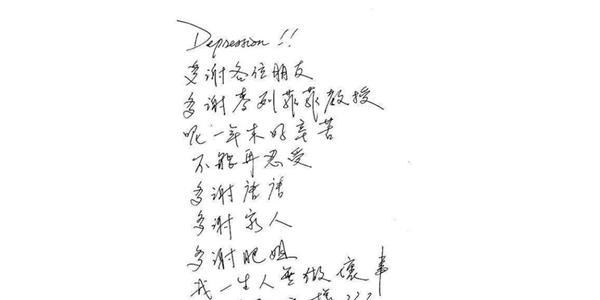 Depression!!
多谢各位朋友
多谢李列菲菲教授
呢一年来好辛苦
不能再忍受
多谢唐唐
多谢家人
多谢肥姐
我一生人无做坏事